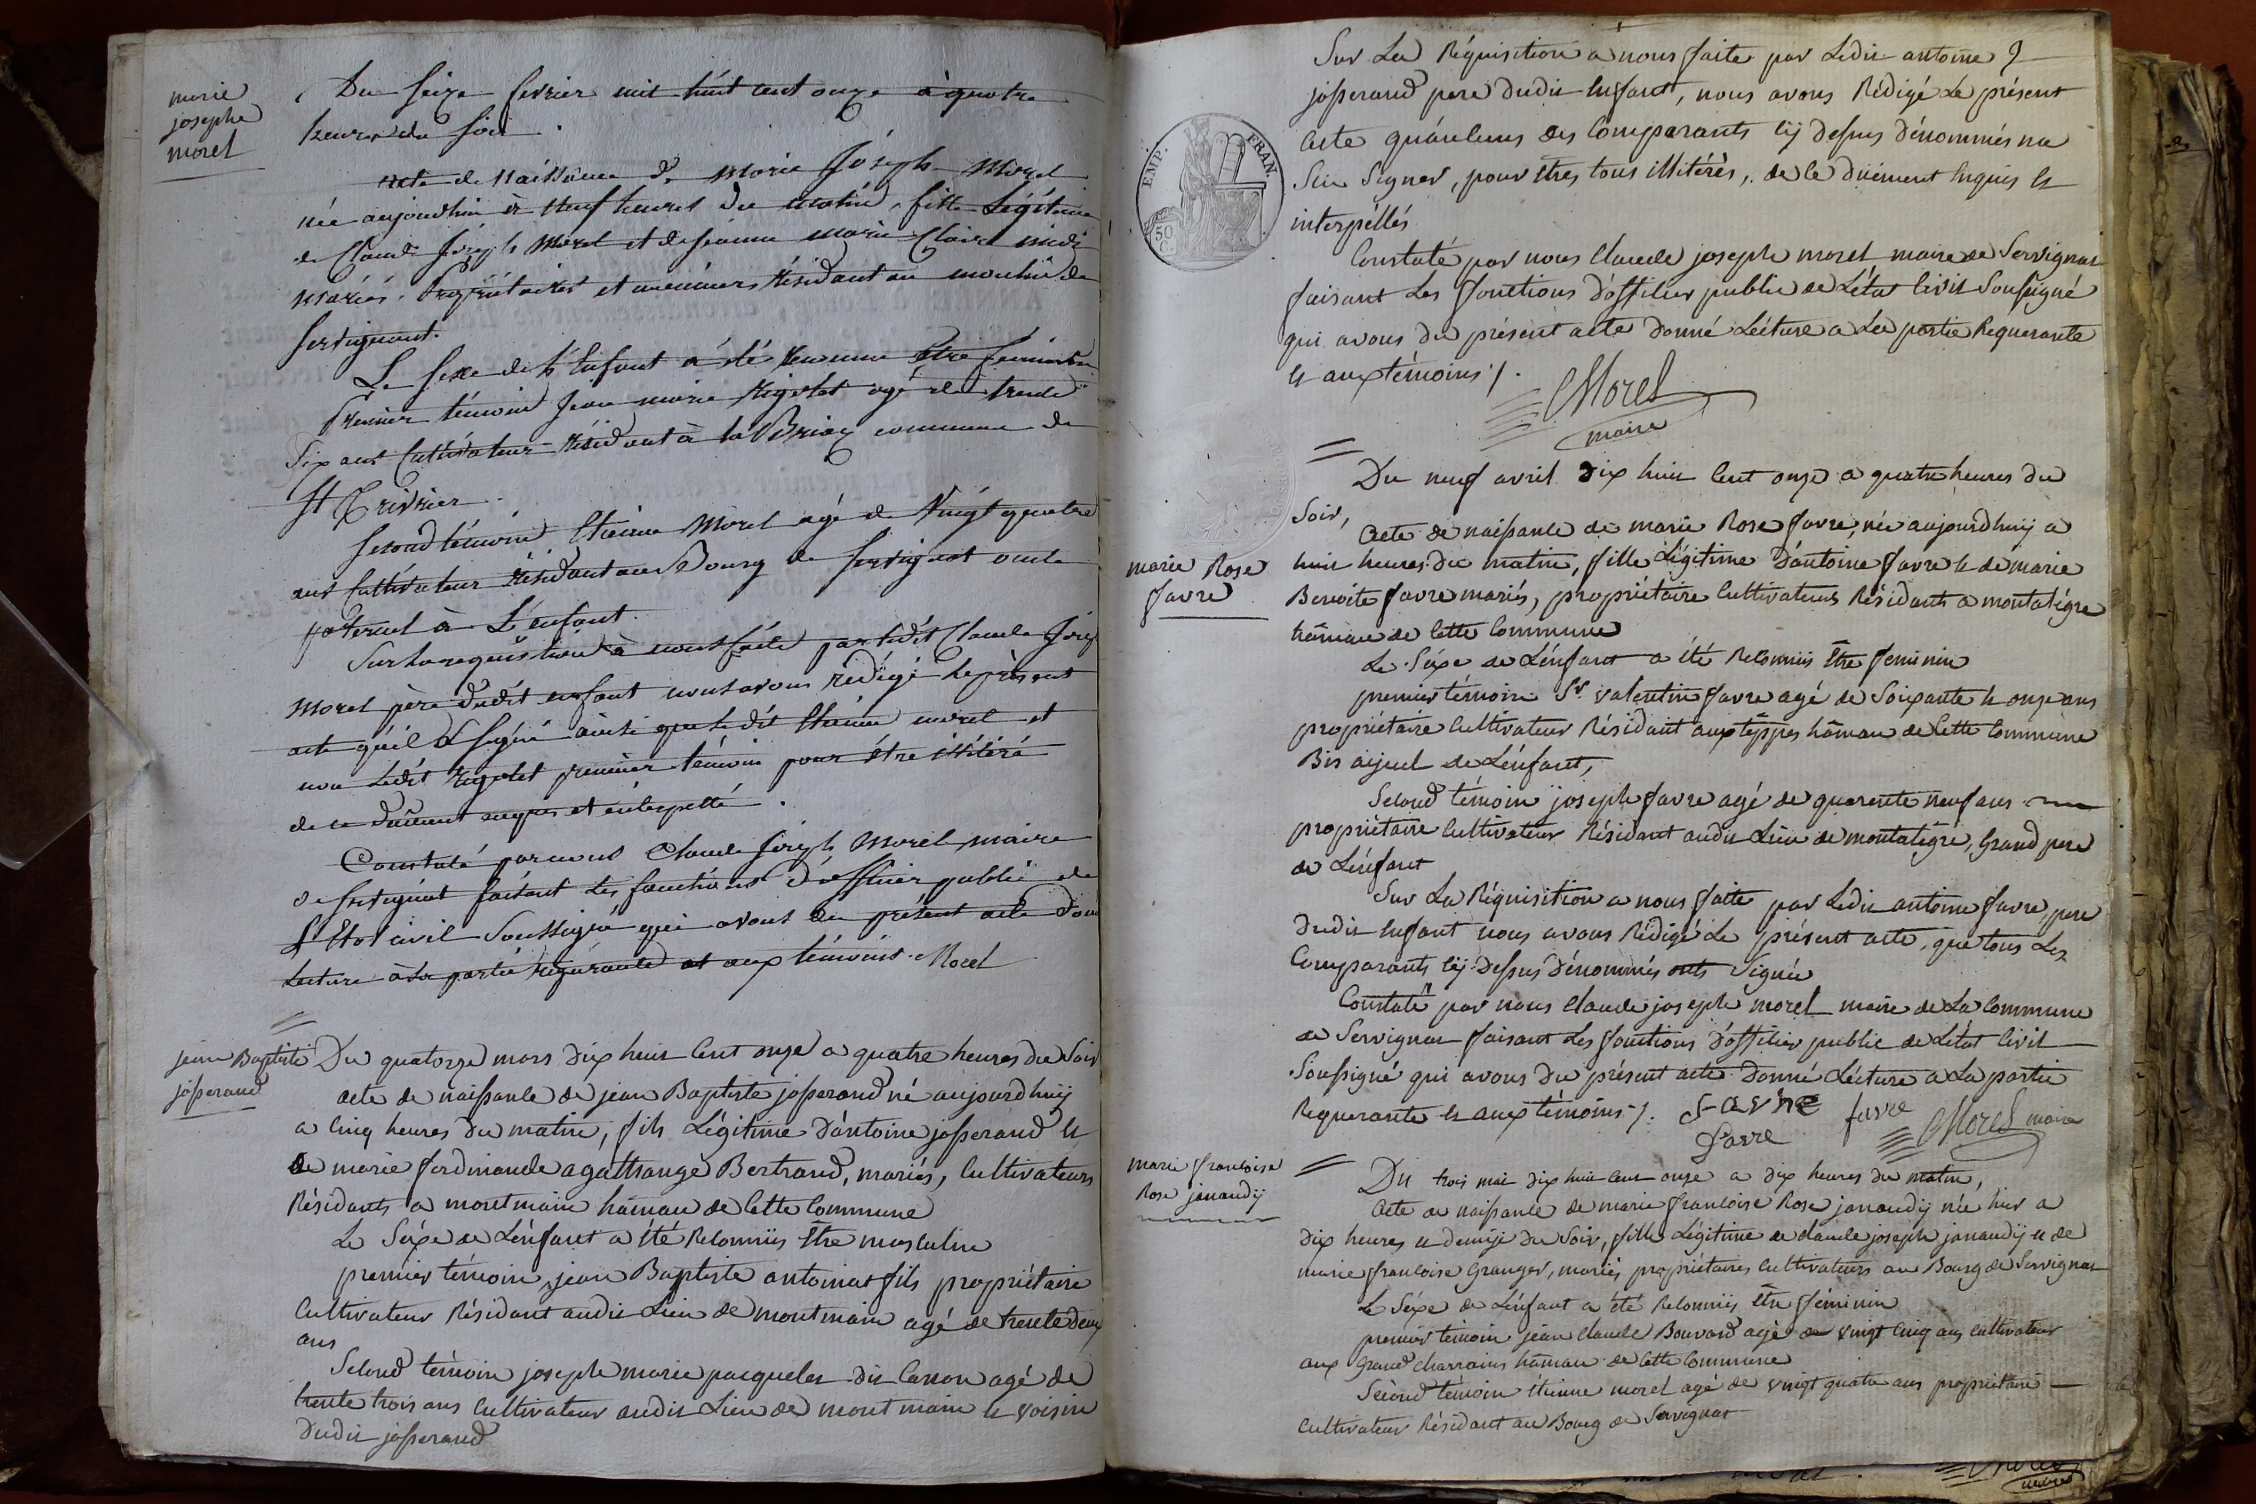 marie
josephe
morel
Du seize fevrier mil huit cent onze à quatre
heures du soir.
acte de naissance de marie Joséph Morel
née aujourdhui à neuf heures du matin, fille Légitime
de Claude Joseph Morel et de jeanne marie Claire
mariés. Propriétaires et meuniers résidant au moulin de
servignat.
Le sexe de l'Enfant a été reconnu être feminin
Premier témoin Jean marie Rigolet agé de trente
six ans Cultivateur résidant à la Briay commune de
St Trivrier.
second témoin Etienne Morel agé de Vingt quatre
ans Cultivateur résidant au Bourg de servignat oncle
paternel à L'enfant.
Sur la requisition à nous faite par ledit Claude Josep
Morel père dudit enfant nous avons rédigé le présent
acte qu'il a signé ainsi que le dit Etienne morel et
non ledit rigolet premier témoin pour être illitéré
de ce dûment enquis et interpellé.
Constaté par nous Claude Joseph Morel maire
de servignat faisant les fonctions d'officier public de
L'Etat civil Soussigné qui avons du présent acte donné
Lecture à la partie requérante et aux témoins. Morel
jean Baptiste
josserand
Du quatorze mars dix huit cent onze a quatre heures du Soir
acte de naissance de jean Baptiste josserand né aujourdhuij
a cinq heures du matin, fils Légitime d'antoine josserand et
de marie ferdinande agathange Bertrand, mariés, Cultivateurs
Résidants a montmain hâmau de Cette Commune
Le Séxe de L'énfant a été Reconnüs être masculin
premier témoin jean Baptiste antoinat fils propriétaire
Cultivateur Résidant audit Lieu de montmain agé de trente deux
ans
Second témoin joseph marie pacquelet dit Canon agé de
trente trois ans Cultivateur audit Lieu de mont main et voisin
dudit josserand
Sur La Réquisition a nous faite par Ledit antoine
josserand pere dudit Enfant, nous avons Rédigé Le présent
acte qu'aucuns des Comparants cij dessus dénommés na
Scu Signer, pour êtres tous illitérés, de ce dûement Enquis et
interpéllés
Constaté par nous Claude joseph morel maire de Servignat
faisant Les fonctions d'officier public de L'état Civil Soussigné
qui avons du présent acte donné Lécture a La partie Requerante
et aux témoins ./.
Morel
maire
EMP. FRAN.
50
C
Du neuf avril dix huit Cent onze a quatre heures du
Soir,
marie Rose
favre
acte de naissance de marie Rose favre, née aujourdhuij a
huit heures du matin, fille Légitime d'antoine favre et de marie
Benoite favre mariés, propriétaire Cultivateurs Résidants a montalégre
hâmau de Cette Commune
Le Séxe de L'énfant a été Reconnüs être feminin
premier témoin Sr. valentin favre agé de Soixante et onze ans
propriétaire Cultivateur Résidant aux téppes hâmau de Cette Commune
Bis aijeul de L'énfant,
Second témoin joseph favre agé de quarente neuf ans
propriétaire Cultivateur Résidant audit Lieu de montalégre, Grand pere
de L'énfant
Sur La Réquisition a nous faite par Ledit antoine favre, pere
dudit Enfant nous avons Rédigé Le présent acte, que tous Les
Comparants cij dessus dénommés onts Signés
Constaté par nous Claude joseph morel maire de La Commune
de Servignat faisant Les fonctions d'officier public de L'état Civil
Soussigné qui avons du présent acte donné Lécture a La partie
Requerante et aux témoins ./. favre favre Morel maire
favre
marie francoise
Rose janaudij
Du trois mai dix huit cent onze a dix heures du matin,
acte de naissance de marie francoise Rose janaudij née hier a
dix heures et demije du Soir, fille Légitime de claude joseph janaudij et de
marie francoise Granger, mariés propriétaires Cultivateurs au Bourg de Servignat
Le Séxe de L'énfant a été Reconnüs être féminin
premier témoin jean claude Bouvard agé de vingt Cinq ans cultivateur
aux Grand charrains hâmau de Cette Commune
Sécond témoin étienne morel agé de vingt quatre ans propriétaire
Cultivateur Résidant au Bourg de Servignat